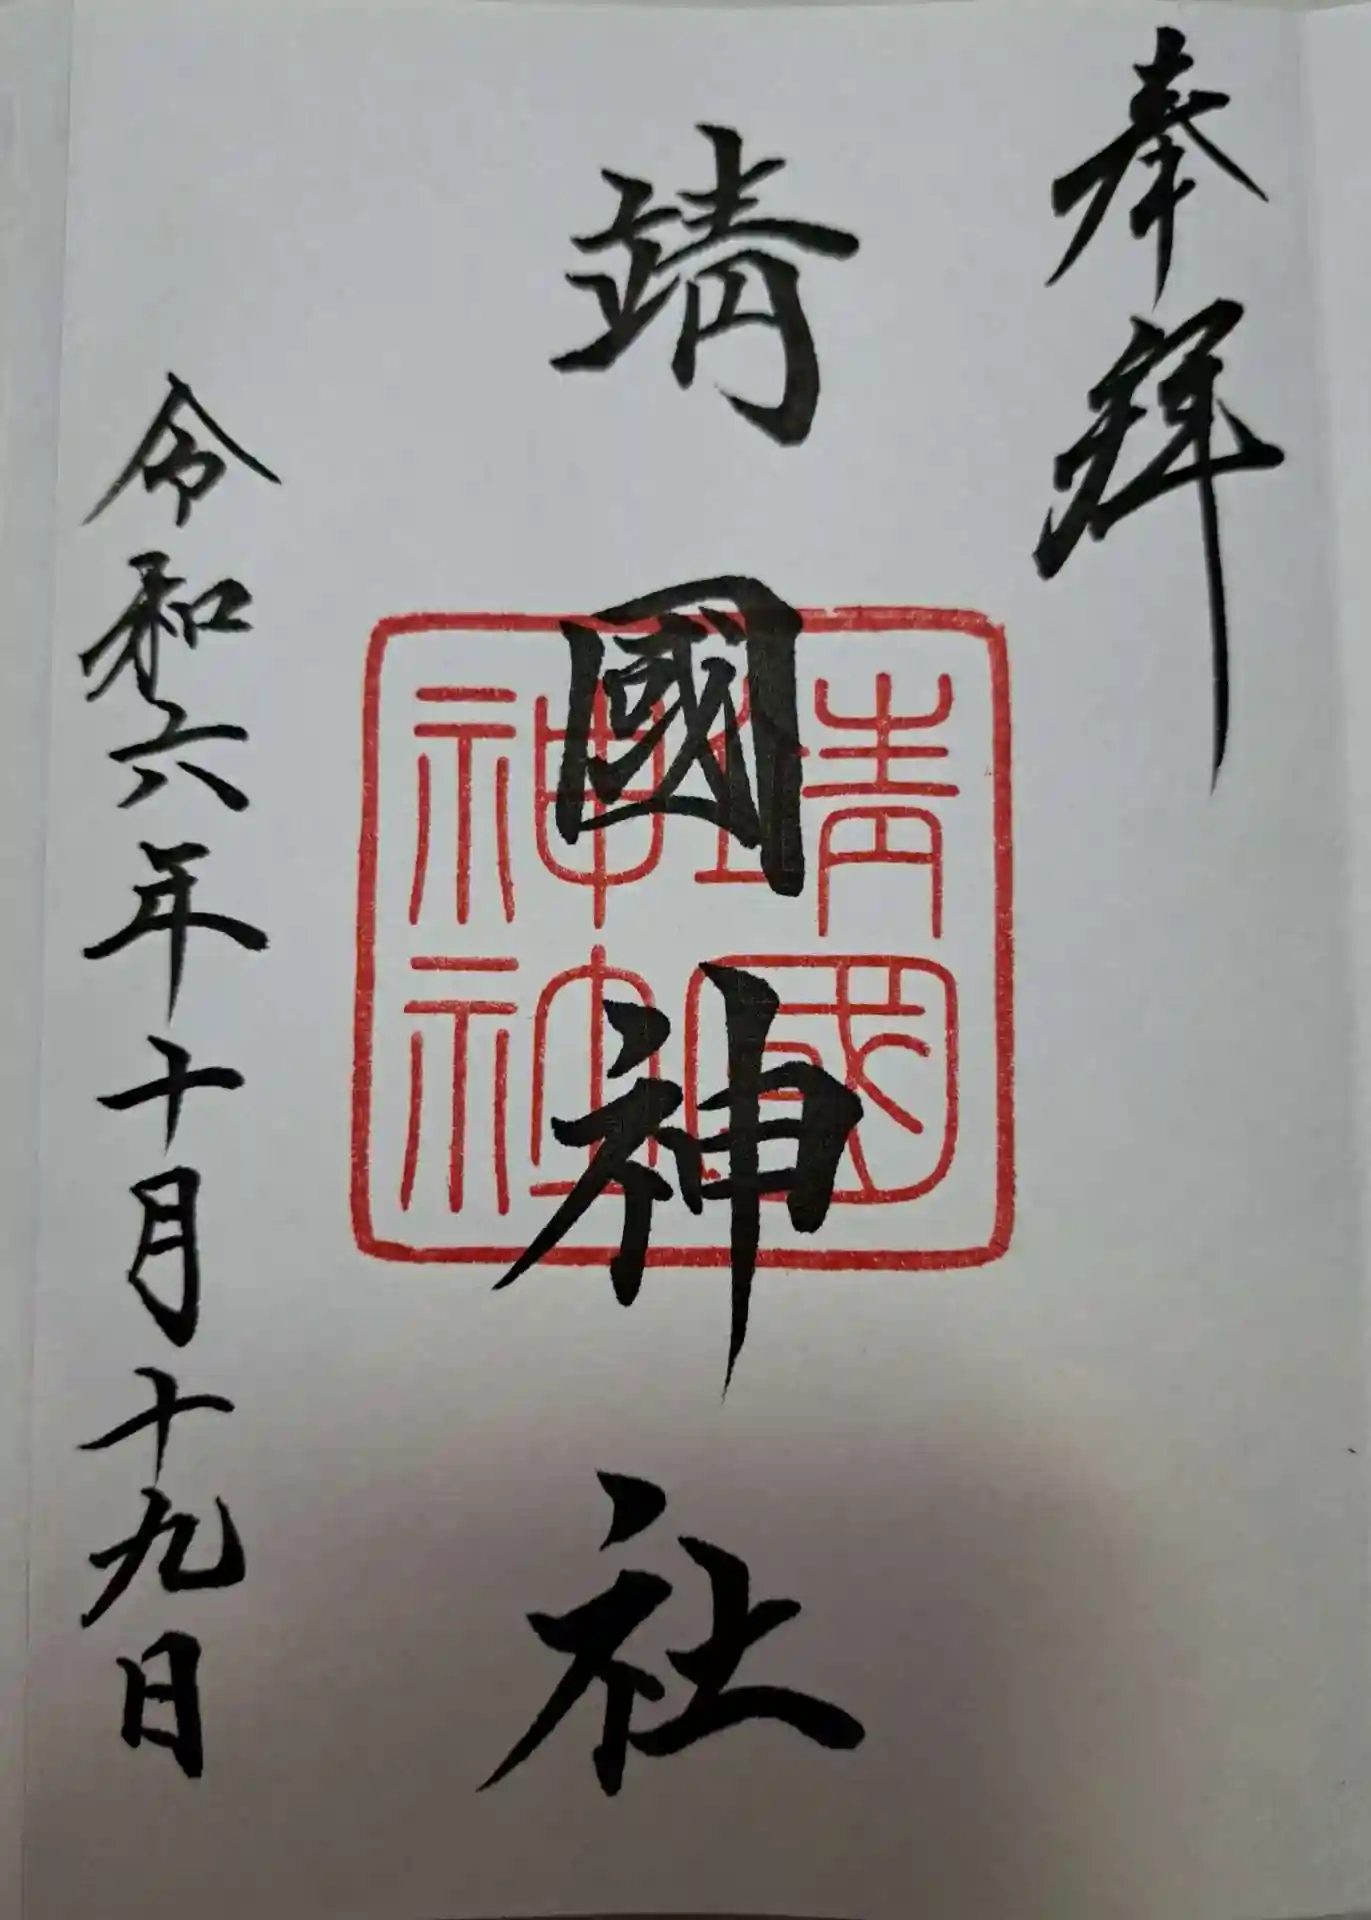 奉拜
靖國神社
靖國
神社
令和六年十月十九日